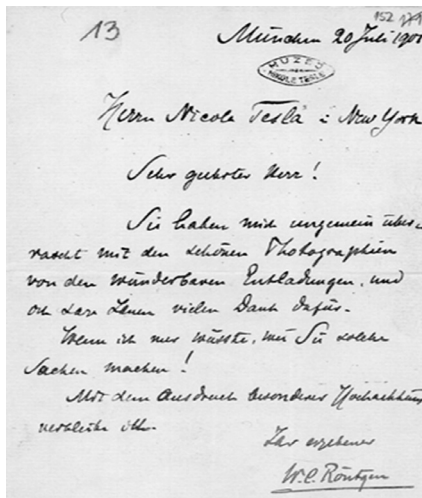 152 179
13
München 20 Juli 190
MUZEJ
NIKOLE TESLE
Herrn Nicola Tesla i New York
Sehr geehrter Herr!
Sie haben mich ungemein über-
rascht mit den schönen Photographien
von den wunderbaren Entladungen, und
ich sage Ihnen vielen Dank dafür.
Wenn ich nur wüsste, wie Sie solche
Sachen machen!
Mit dem Ausdruck besonderer Hochachtung
verbleibe ich
Ihr ergebener
W. C. Röntgen